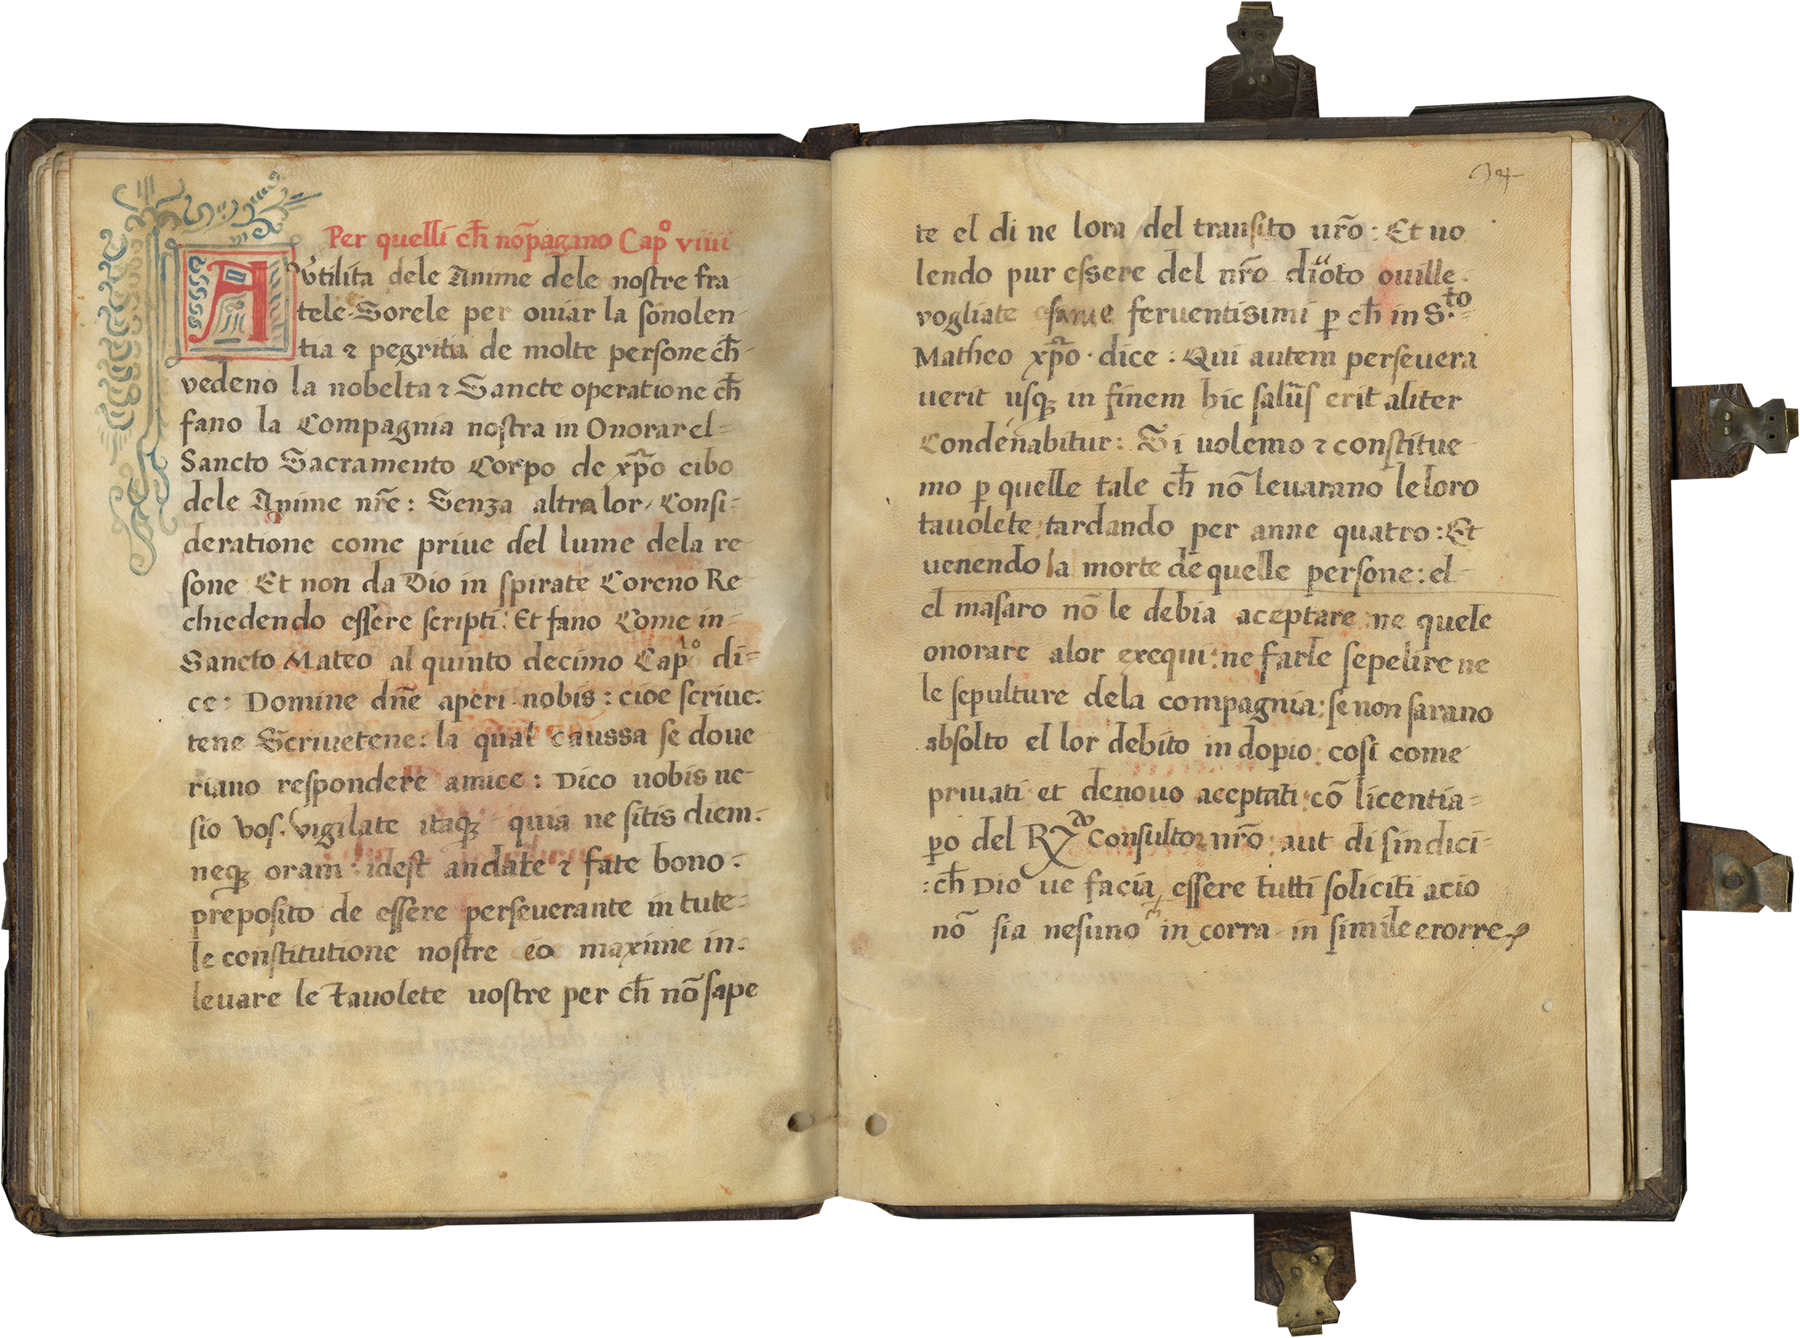 Per quelli ch̄ nō pagano Capº viiii
A Vtilita dele Anime dele nostre fra
tele Sorele per ouiar la sonolen-
tia ⁊ pegritia de molte persone ch̄-
vedeno la nobelta ⁊ Sancte operatione ch̄
fano la Compagnia nostra in Onorar el=
Sancto Sacramento Corpo de xp̄o cibo
dele Anime nr̄e : Senza altra lor Consi-
deratione come priue del lume dela re-
sone Et non da Dio in spirate Coreno Re
chiedendo essere scripti : Et fano Come in-
Sancto Mateo al quinto decimo Capº di=
ce : Domine dn̄e aperi nobis : cioe scriue-
tene Scriuetene : la qual caussa se doue-
riano respondere amice : Dico uobis ne-
sio vos . vigilate itaqꝫ quia ne sitis diem .
neqꝫ oram : idest andate ⁊ fate bono .
preposito de essere perseuerante in tute-
le constitutione nostre eo maxime in-
leuare le tauolete uostre per ch̄ nō sape
34
te el di ne lora del transito ur̄o : Et uo
lendo pur essere del nr̄o diuoto ouille .
vogliate esarue feruentisimi ꝑ ch̄ in S.to=
Matheo xp̄o . dice : Qui autem perseuera
uerit usqꝫ in finem hic saluūs erit aliter
Condenabitur : Si uolemo ⁊ constitue-
mo ꝑ quelle tale ch̄ nō leuarano le loro
tauolete tardando per anne quatro : Et
uenendo la morte de quelle persone : el-
el masaro nō le debia aceptare ne quele
onorare alor exequi : ne farle sepelire ne
le sepulture dela compagnia : se non sarano
absolto el lor debito in dopio : cosi come
priuati et denouo aceptati cō licentia=
ꝑo del Rdo Consultor nr̄o : aut di sindici=
: ch̄ Dio ue facia essere tutti soliciti acio
nō sia nesuno in corra in simile erorre